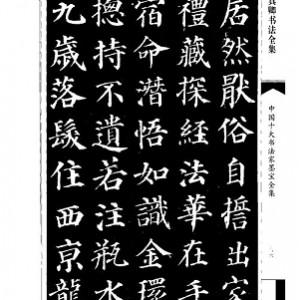 卿书法全集
中国十大书法家墨宝全集
居然厭俗自誓出家
禮藏探經法華在手
宿命潛悟如識金環
揔持不遺若注瓶水
九歲落髮住西京龍